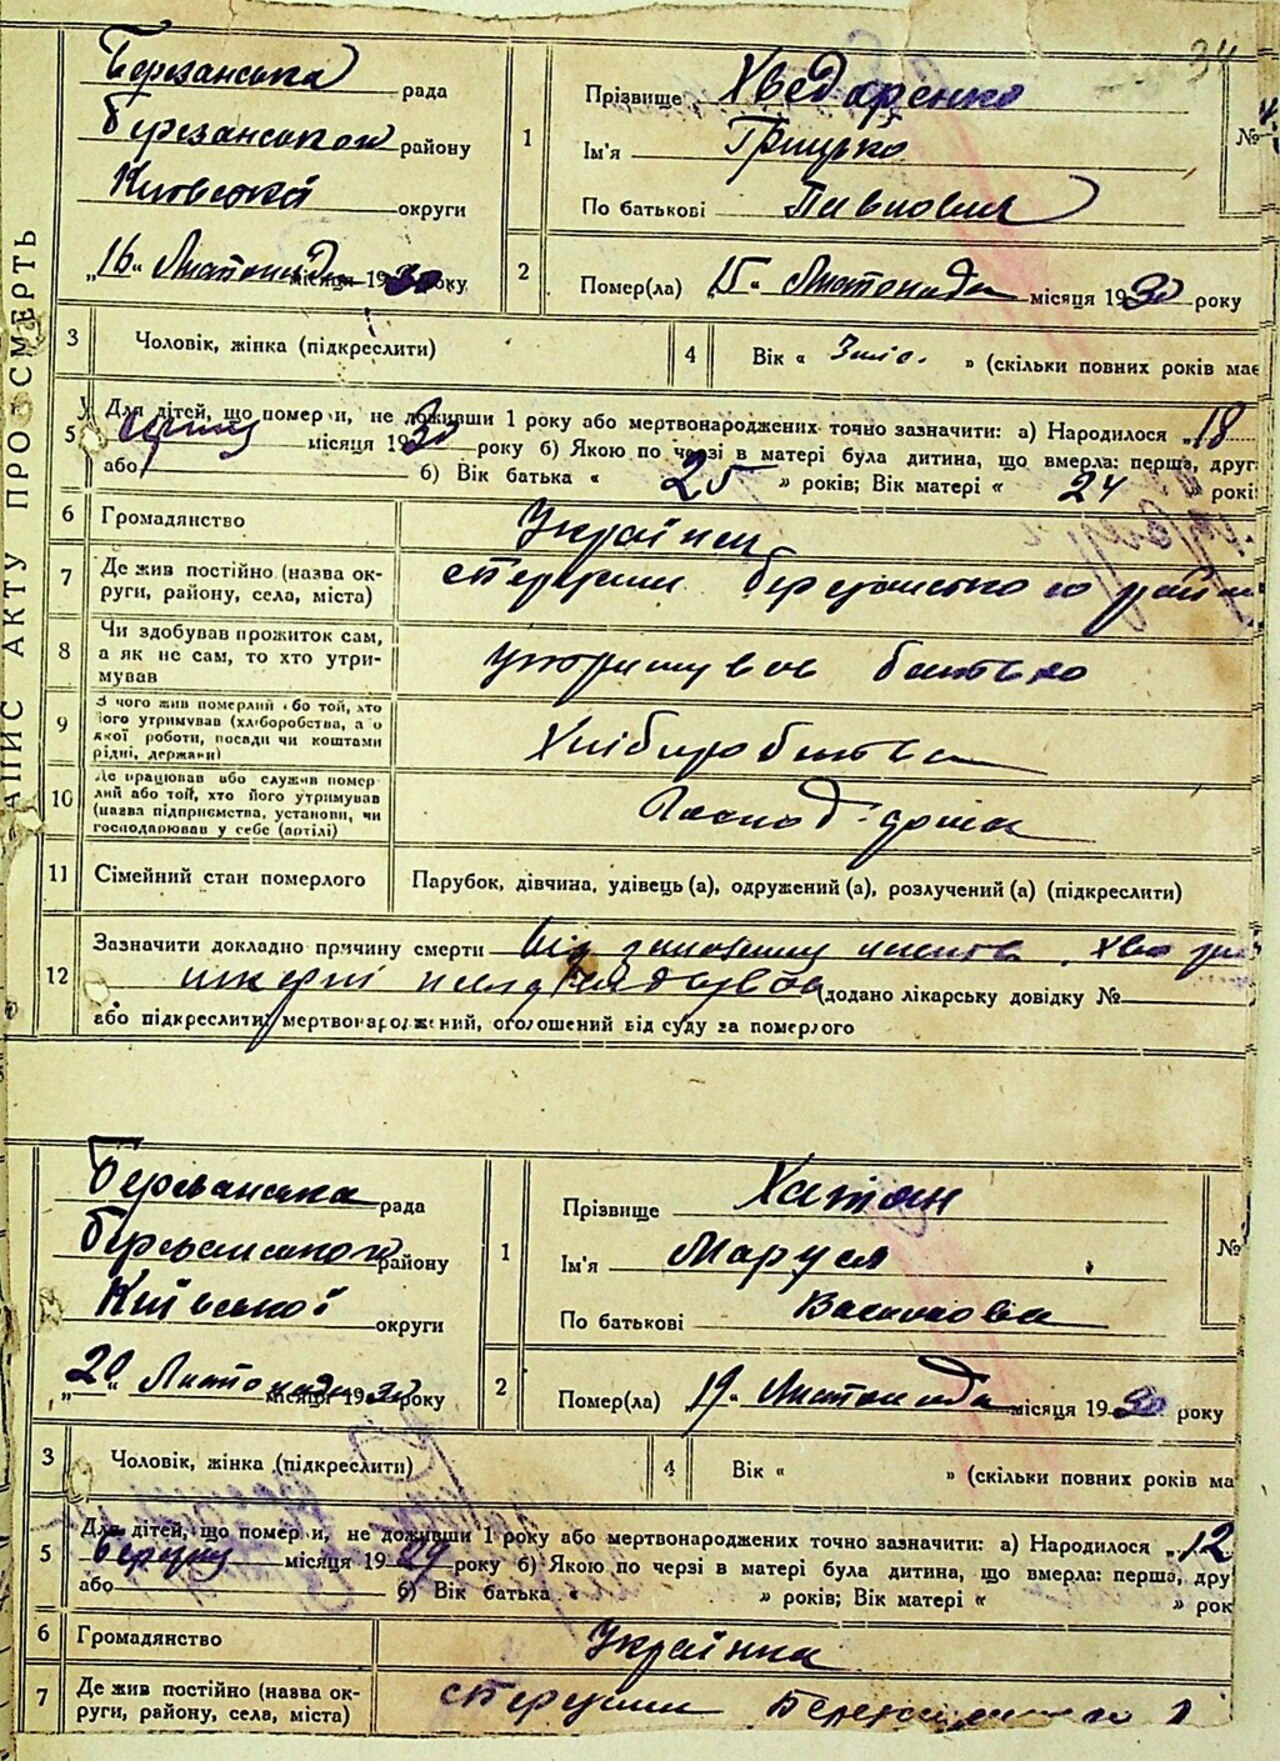 34
АПИС АКТУ ПРО СМЕРТЬ
Березанська рада
Березанського району
Київської округи
„16“ Листопада місяця 1930 року
1
Прізвище Хведоренко
Ім'я Грицько
По батькові Павлович
№
2
Помер(ла) „15“ Листопада місяця 1930 року
3
Чоловік, жінка (підкреслити)
4
Вік « 3 міс. » (скільки повних років має
5
Для дітей, що померли, не доживши 1 року або мертвонароджених точно зазначити: а) Народилося „18
місяця 1930 року б) Якою по черзі в матері була дитина, що вмерла: перша, друг
або б) Вік батька « 25 » років; Вік матері « 24 » рокі
6
Громадянство
Українец
7
Де жив постійно (назва ок-
руги, району, села, міста)
Березанського району
8
Чи здобував прожиток сам,
а як не сам, то хто утри-
мував
утримував батько
9
З чого жив померлий або той, хто
його утримував (хліборобства, а о
якої роботи, посади чи коштами
рідні, держави)
Хліборобства
10
Де працював або служив помер-
лий або той, хто його утримував
(назва підприємства, установи, чи
господарював у себе (артілі)
11
Сімейний стан померлого
Парубок, дівчина, удівець (а), одружений (а), розлучений (а) (підкреслити)
12
Зазначити докладно причину смерти Від
(додано лікарську довідку №
або підкреслити: мертвонароджений, оголошений від суду за померлого
Березанська рада
Березанського району
Київської округи
„20“ Листопада місяця 1930 року
1
Прізвище Хатан
Ім'я Маруся
По батькові Василовна
№
2
Помер(ла) 19“ Листопада місяця 1930 року
3
Чоловік, жінка (підкреслити)
4
Вік « » (скільки повних років ма
5
Для дітей, що померли, не доживши 1 року або мертвонароджених точно зазначити: а) Народилося „12
березня місяця 1929 року б) Якою по черзі в матері була дитина, що вмерла: перша, дру
або б) Вік батька « » років; Вік матері « » рок
6
Громадянство
Українка
7
Де жив постійно (назва ок-
руги, району, села, міста)